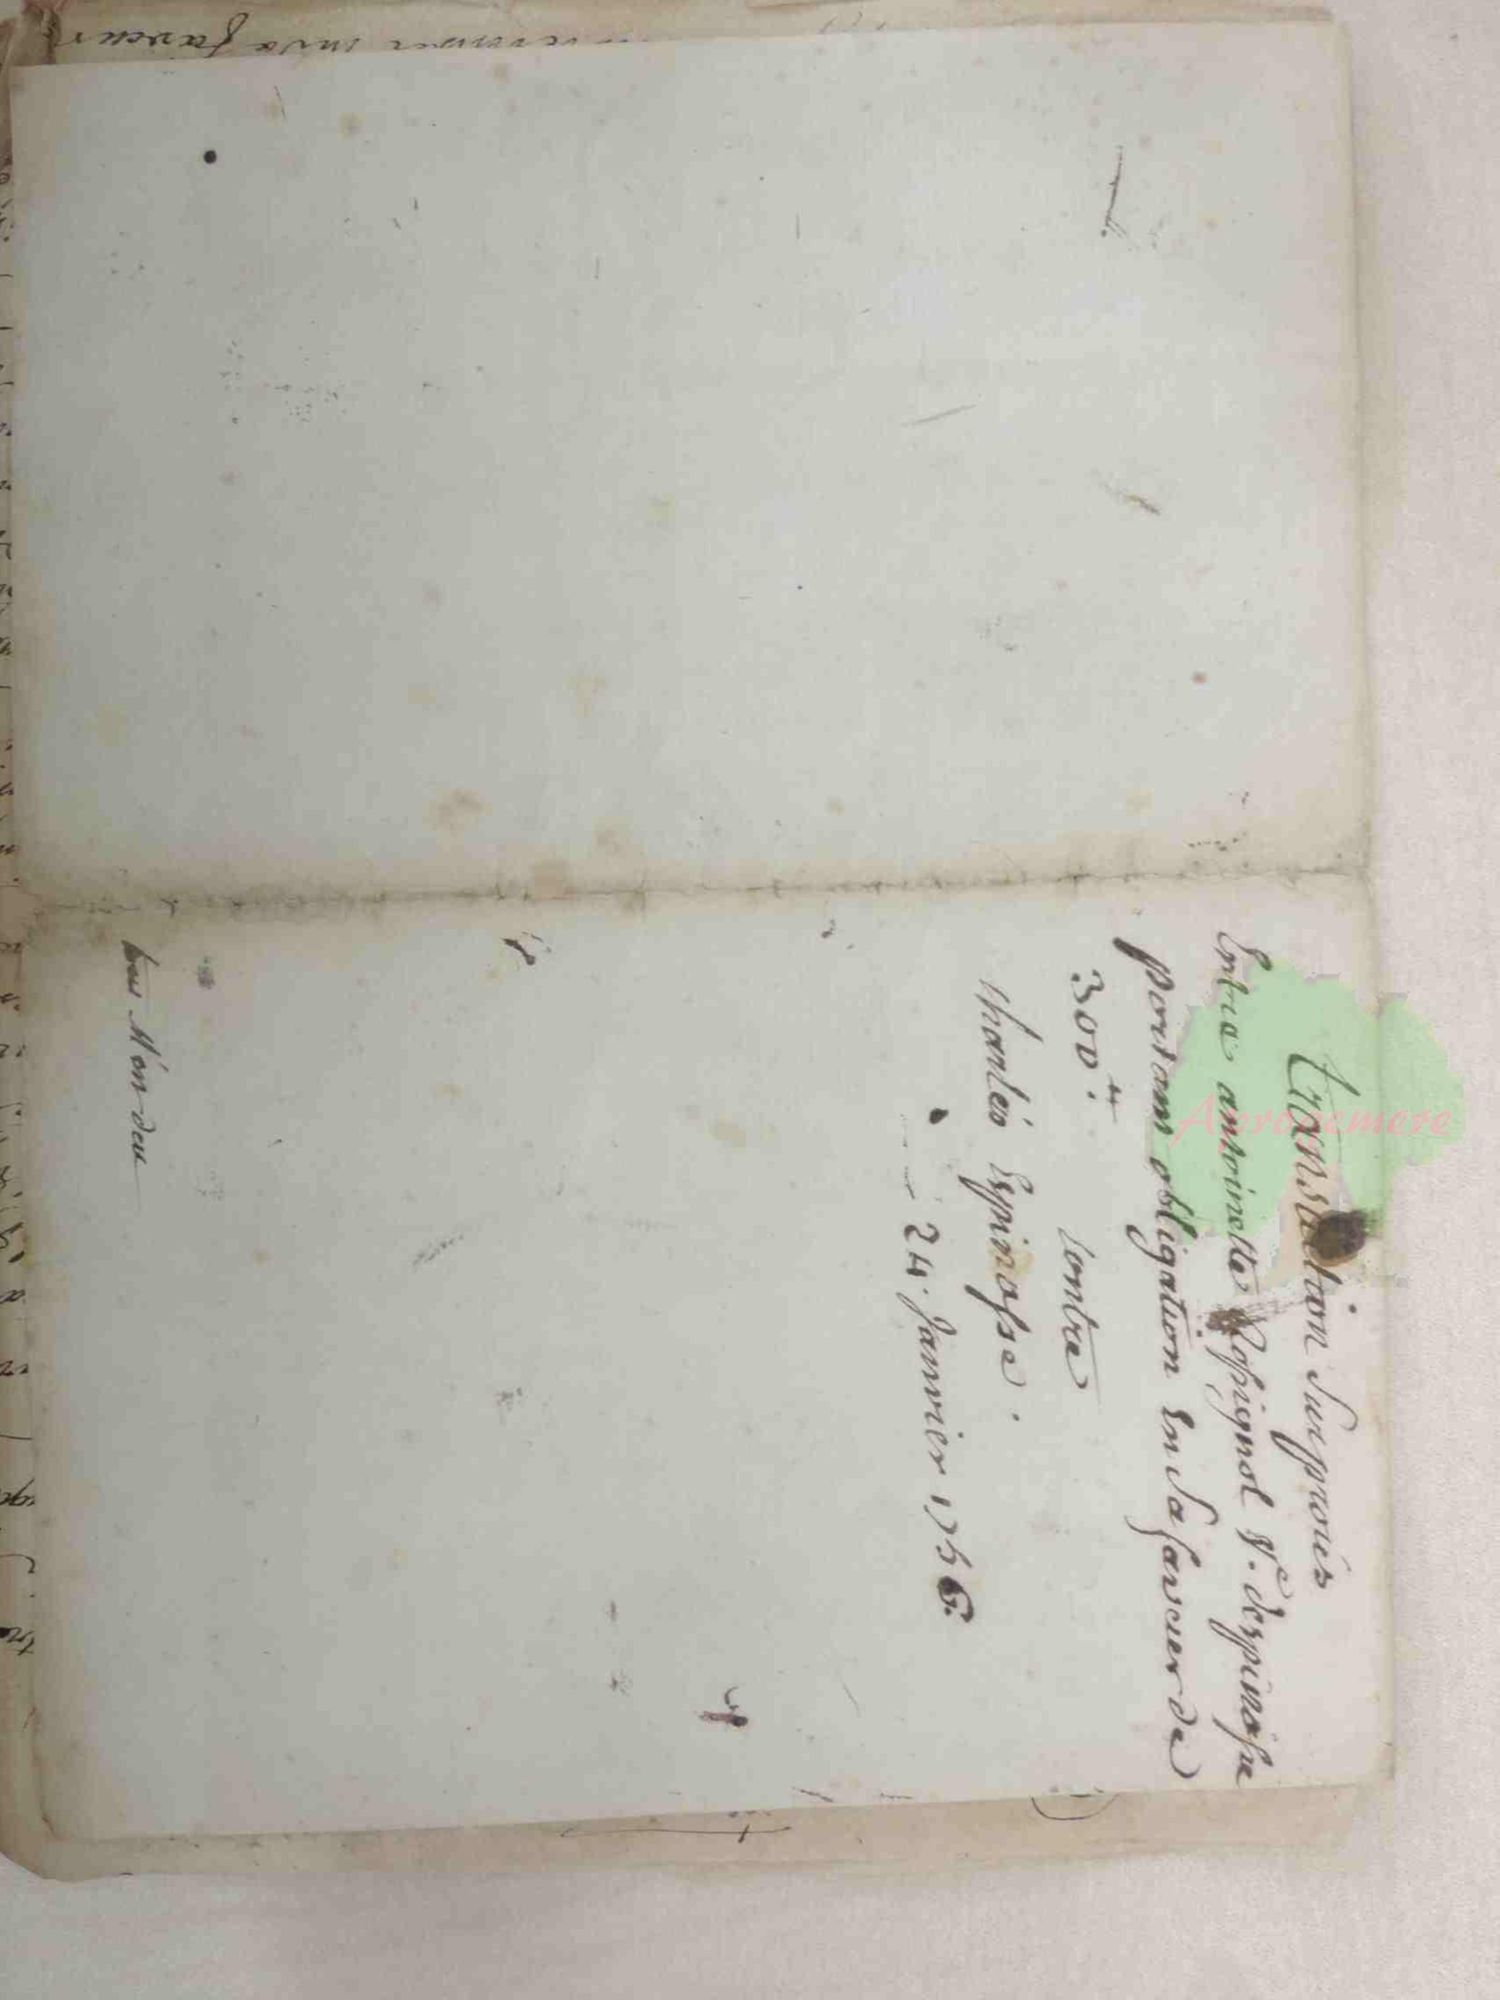 transaction Surprocés
Entre antoinette Rossignol v.e despinasse
portant obligation En Sa faveur de
300.lt contre
charles Espinasse.
24. Janvier 1756.
Apropemere